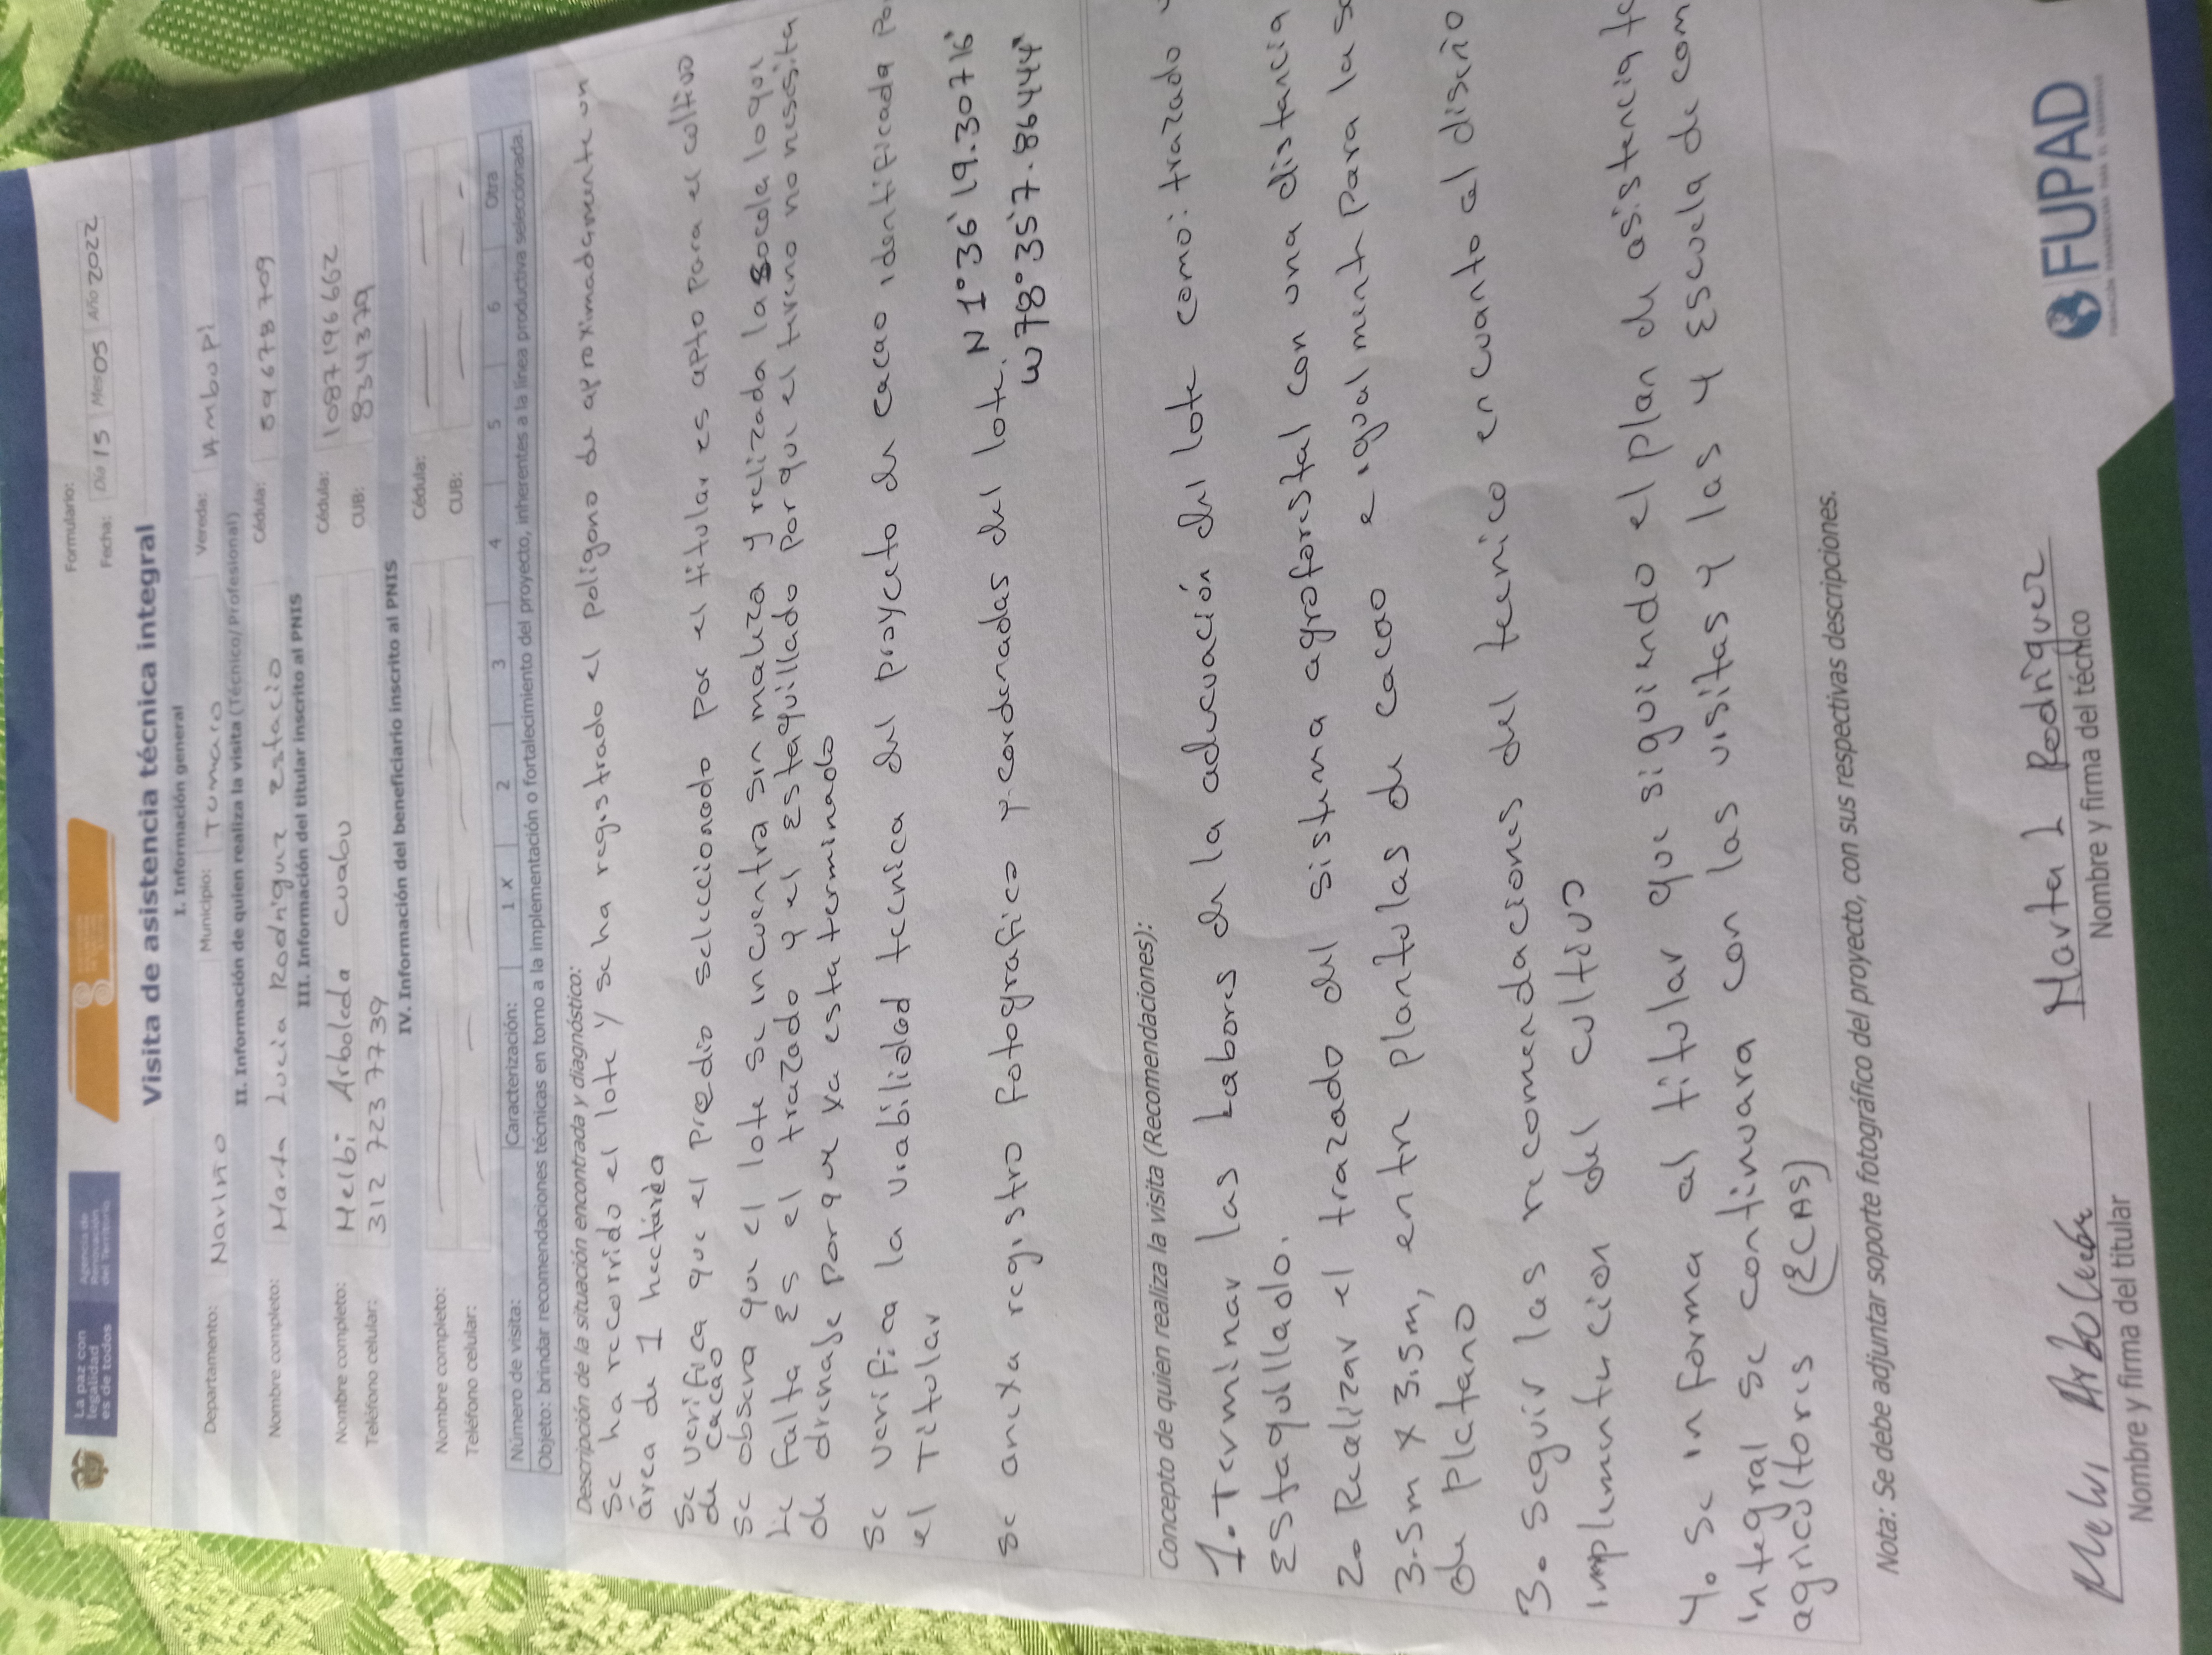 La paz con
legalidad
es de todos
Agencia de
Renovación
del Territorio
Formulario:
Fecha: Día 15 Mes 05 Año 2022
Visita de asistencia técnica integral
I. Información general
Departamento: Nariño Municipio: Tumaco Vereda: IAmbopi
II. Información de quien realiza la visita (Técnico/Profesional)
Nombre completo: Marta Lucia Rodriguez Estacio Cédula: 59678709
III. Información del titular inscrito al PNIS
Nombre completo: Melbi Arboleda cuabu Cédula: 1087196662
Teléfono celular: 312 723 7739 CUB: 834379
IV. Información del beneficiario inscrito al PNIS
Nombre completo: Cédula:
Teléfono celular: CUB:
Número de visita: Caracterización: 1 X 2 3 4 5 6 Otra
Objeto: brindar recomendaciones técnicas en torno a la implementación o fortalecimiento del proyecto, inherentes a la línea productiva seleccionada.
Descripción de la situación encontrada y diagnóstico:
Se ha recorrido el lote y se ha registrado el poligono de aproximadamente un
área de 1 hectárea
Se verifica que el predio seleccionado por el titular es apto para el cultivo
de cacao
Se observa que el lote se incuentra sin maleza y relizada la socola lo que
le falta Es el trazado y el Estaquillado por que el tureno no nesesita
de drenaje porque ya esta terminado
Se verifica la viabilidad tecnica del proyecto de cacao identificada po
el Titular
Se anexa registro fotografico y cordenadas del lote. N 1°36'19.30716"
W78°35'7.86444"
Concepto de quien realiza la visita (Recomendaciones):
1. Terminar las Labores de la adecuación del lote como: trazado
Estaquillado.
2. Realizar el trazado del sistema agroforestal con una distancia
3.5m x 3.5m, entre plantulas de cacao e igualment Para la s
de platano
3. seguir las recomendaciones del tecnico encuanto al diseño
implementucion del cultivo
4. se informa al titular que siguiendo el plan de asistencia te
integral se continuara con las visitas y las 4 Escuela de com
agricultores (ECAS)
Nota: Se debe adjuntar soporte fotográfico del proyecto, con sus respectivas descripciones.
Melvi Arboleda
Nombre y firma del titular
Marta L Rodriguez
Nombre y firma del técnico
FUPAD
FUNDACIÓN PANAMERICANA PARA EL DESARROLLO